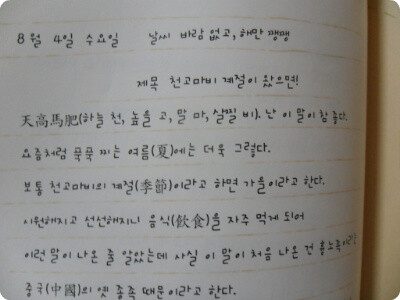 8월 4일 수요일 날씨 바람 없고, 해만 쨍쨍
제목 천고마비 계절이 왔으면!
天高馬肥(하늘 천, 높을 고, 말 마, 살찔 비). 난 이 말이 참 좋다.
요즘처럼 푹푹 찌는 여름(夏)에는 더욱 그렇다.
보통 천고마비의 계절(季節)이라고 하면 가을이라고 한다.
시원해지고 선선해지니 음식(飮食)을 자주 먹게 되어
이런 말이 나온 줄 알았는데 사실 이 말이 처음 나온 건 흉노족이라는
중국(中國)의 옛 종족 때문이라고 한다.